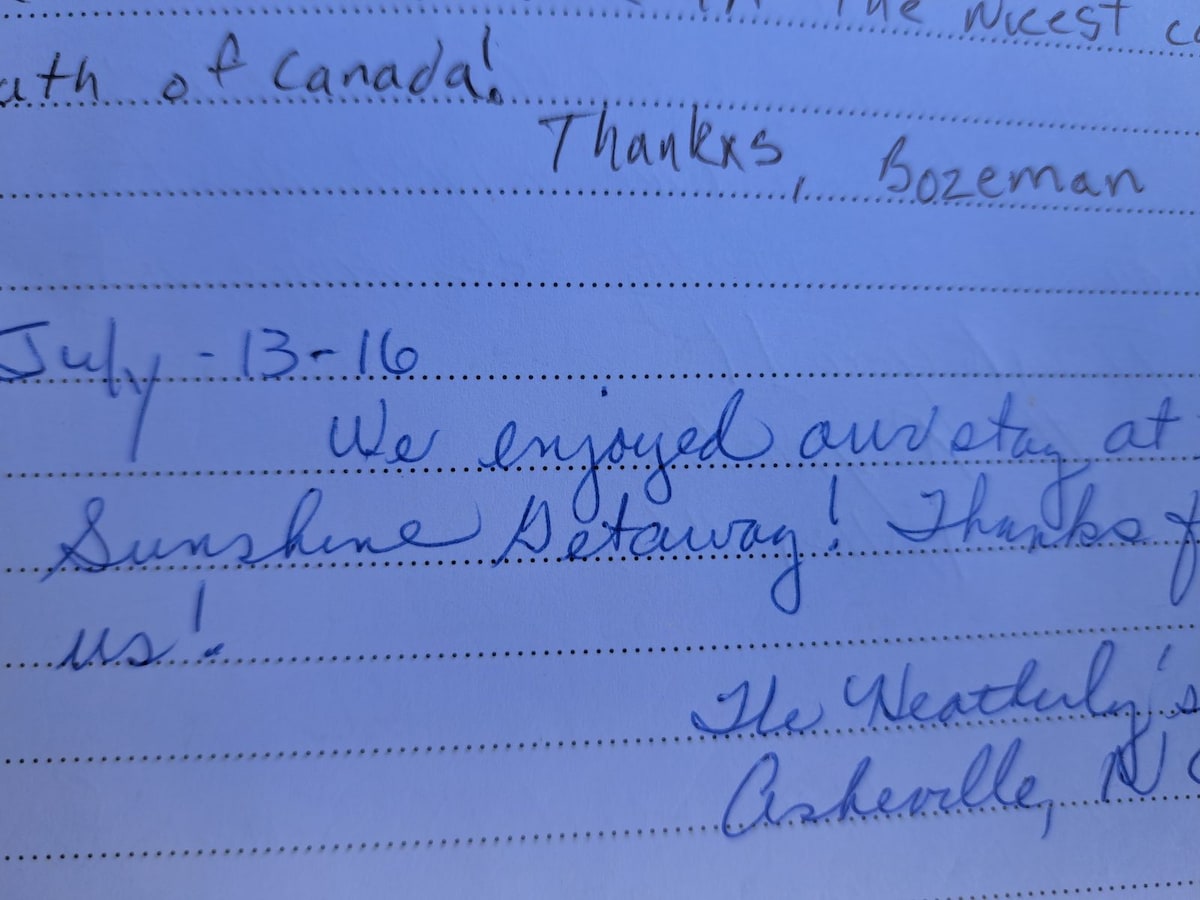 the Nicest
of Canada!
Thankxs, Bozeman
July - 13 - 16
We enjoyed our stay at
Sunshine Getaway! Thanks
us!
The Weatherly's
Asheville, NC